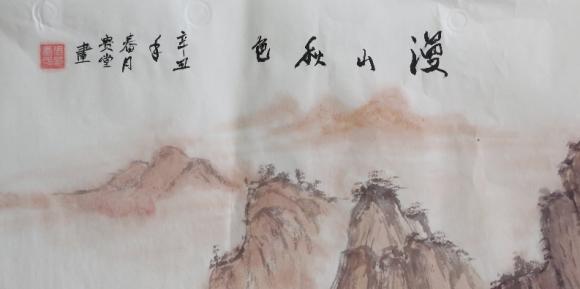 漫山秋色
辛丑
年
春月
贵堂
画